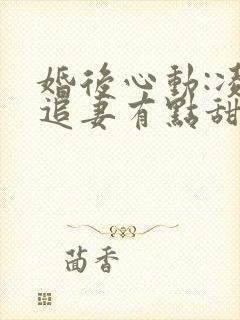 婚後心動:凌
追妻有點甜
茴香